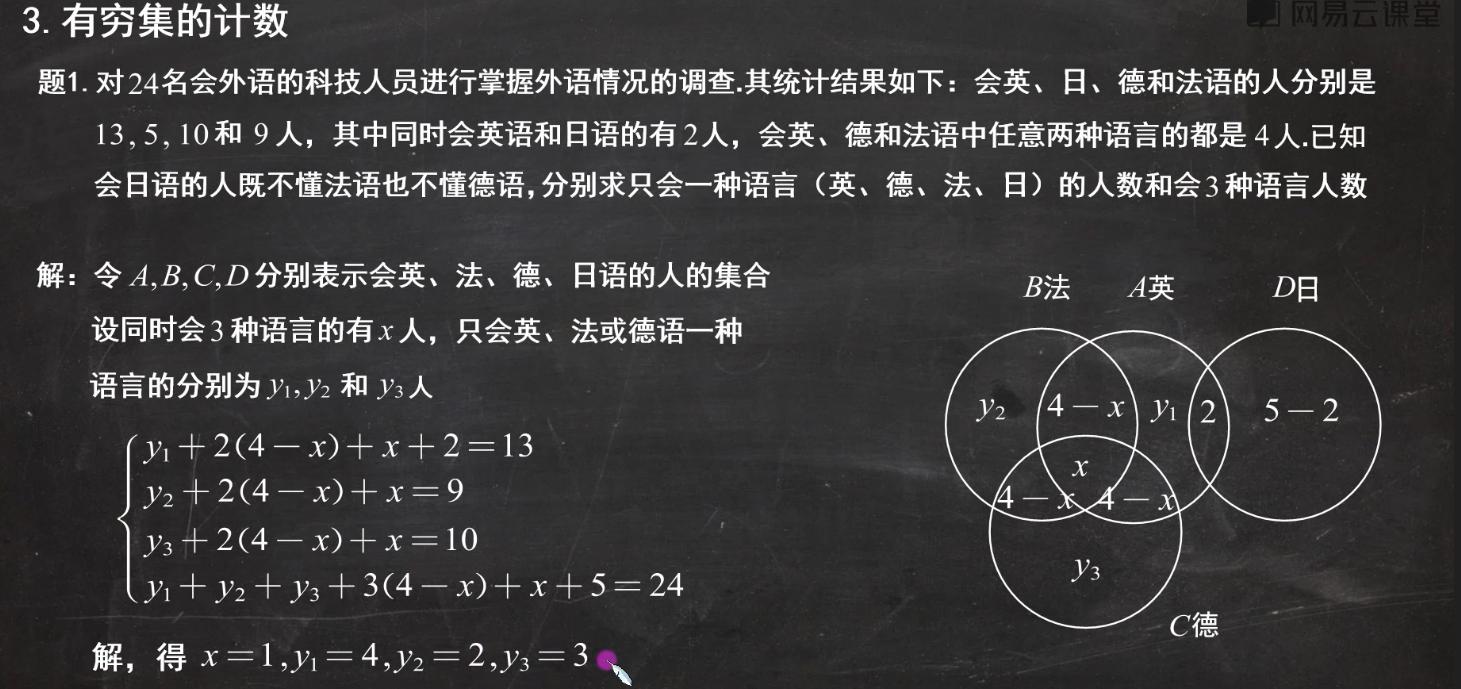 3. 有穷集的计数
网易云课堂
题1. 对24名会外语的科技人员进行掌握外语情况的调查.其统计结果如下：会英、日、德和法语的人分别是
13, 5, 10和 9人，其中同时会英语和日语的有2人，会英、德和法语中任意两种语言的都是 4人.已知
会日语的人既不懂法语也不懂德语, 分别求只会一种语言（英、德、法、日）的人数和会3种语言人数
解：令 A, B, C, D 分别表示会英、法、德、日语的人的集合
设同时会3种语言的有x人，只会英、法或德语一种
语言的分别为 y₁, y₂ 和 y₃人
y₁ + 2(4 − x) + x + 2 = 13
y₂ + 2(4 − x) + x = 9
y₃ + 2(4 − x) + x = 10
y₁ + y₂ + y₃ + 3(4 − x) + x + 5 = 24
解，得 x = 1, y₁ = 4, y₂ = 2, y₃ = 3
B法 A英 D日
y₂ 4 − x y₁ 2 5 − 2
x
4 − x 4 − x
y₃
C德